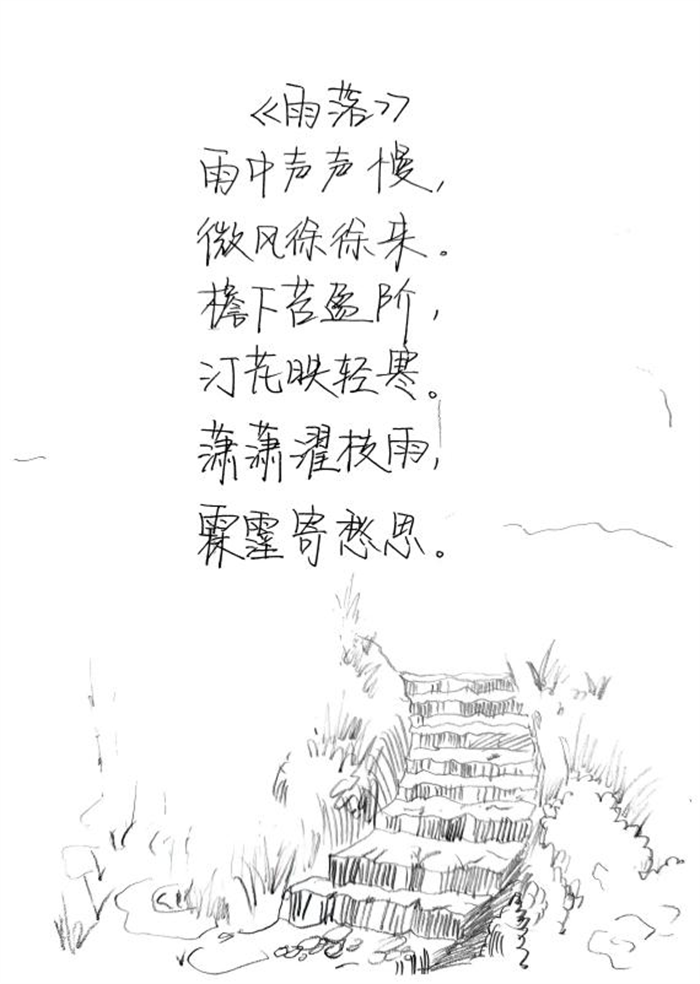 《雨落》
雨中声声慢，
微风徐徐来。
檐下苔盈阶，
汀花映轻寒。
潇潇濯枝雨，
霖霪寄愁思。